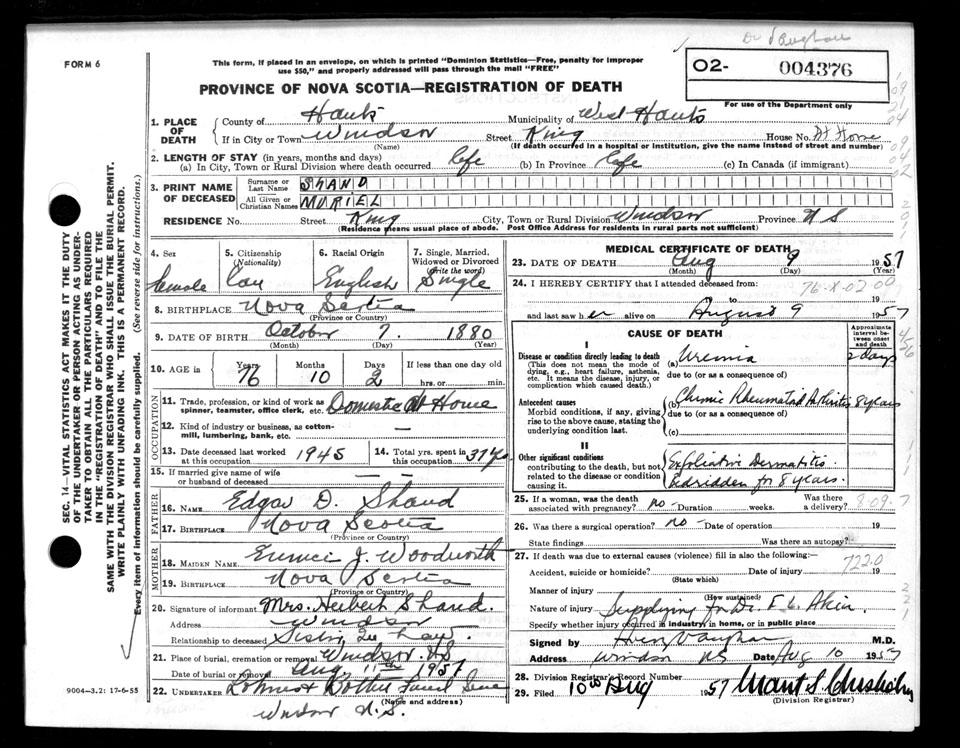 Dr Vaughan
FORM 6
This form, if placed in an envelope, on which is printed "Dominion Statistics—Free, penalty for improper
use $50," and properly addressed will pass through the mail "FREE"
O2- 004376
For use of the Department only
PROVINCE OF NOVA SCOTIA—REGISTRATION OF DEATH
1. PLACE OF DEATH
County of Hants Municipality of West Hants
If in City or Town Windsor Street King House No. At Home
(Name) (If death occurred in a hospital or institution, give the name instead of street and number)
2. LENGTH OF STAY (in years, months and days)
(a) In City, Town or Rural Division where death occurred life (b) In Province life (c) In Canada (if immigrant)
3. PRINT NAME OF DECEASED
Surname or Last Name SHAND
All Given or Christian Names MURIEL
RESIDENCE No. Street King City, Town or Rural Division Windsor Province N S
(Residence means usual place of abode. Post Office Address for residents in rural parts not sufficient)
4. Sex female
5. Citizenship (Nationality) Can
6. Racial Origin English
7. Single, Married, Widowed or Divorced (Write the word) Single
8. BIRTHPLACE Nova Scotia
(Province or Country)
9. DATE OF BIRTH October 7. 1880
(Month) (Day) (Year)
10. AGE in Years 76 Months 10 Days 2 If less than one day old hrs. or min.
OCCUPATION
11. Trade, profession, or kind of work as spinner, teamster, office clerk, etc. Domestic At Home
12. Kind of industry or business, as cotton-mill, lumbering, bank, etc. —
13. Date deceased last worked at this occupation 1945
14. Total yrs. spent in this occupation 37 yrs
15. If married give name of wife or husband of deceased —
FATHER
16. NAME Edgar D. Shand
17. BIRTHPLACE Nova Scotia
(Province or Country)
MOTHER
18. MAIDEN NAME J. Woodworth
19. BIRTHPLACE Nova Scotia
(Province or Country)
20. Signature of informant Mrs. Herbert Shand.
Address Windsor
Relationship to deceased Sister In Law.
21. Place of burial, cremation or removal Windsor. N.S
Date of burial or removal Aug 11th 1957
22. UNDERTAKER
Windsor N.S.
(Name and address)
MEDICAL CERTIFICATE OF DEATH
23. DATE OF DEATH Aug 9 1957
(Month) (Day) (Year)
24. I HEREBY CERTIFY that I attended deceased from:
76-X-02-00
to 19
and last saw her alive on August 9 1957
CAUSE OF DEATH
Approximate interval between onset and death
I
Disease or condition directly leading to death
(This does not mean the mode of dying, e.g., heart failure, asthenia, etc. It means the disease, injury, or complication which caused death.)
(a) Uremia 2 days
due to (or as a consequence of)
Antecedent causes
Morbid conditions, if any, giving rise to the above cause, stating the underlying condition last.
(b) Chronic Rheumatoid Arthritis 8 years
due to (or as a consequence of)
(c)
II
Other significant conditions
contributing to the death, but not related to the disease or condition causing it.
Exfoliative Dermatitis.
Bedridden for 8 years.
25. If a woman, was the death associated with pregnancy? no — Duration weeks. Was there a delivery?
26. Was there a surgical operation? no — Date of operation 19
State findings Was there an autopsy?
27. If death was due to external causes (violence) fill in also the following:—
Accident, suicide or homicide? Date of injury 19
(State which)
722.0
Manner of injury
(How sustained)
Nature of injury Supplying for Dr.
Specify whether injury occurred in industry, in home, or in public place
Signed by Vaughan M.D.
Address Windsor NS Date Aug 10 1957
28. Division Registrar's Record Number
29. Filed 10th Aug 1957
(Division Registrar)
SEC. 14—VITAL STATISTICS ACT MAKES IT THE DUTY
OF THE UNDERTAKER OR PERSON ACTING AS UNDER-
TAKER TO OBTAIN ALL THE PARTICULARS REQUIRED
IN THE "REGISTRATION OF DEATH" AND TO FILE THE
SAME WITH THE DIVISION REGISTRAR WHO SHALL ISSUE THE BURIAL PERMIT.
WRITE PLAINLY WITH UNFADING INK. THIS IS A PERMANENT RECORD.
Every item of information should be carefully supplied. (See reverse side for instructions.)
9004—3.2: 17-6-55